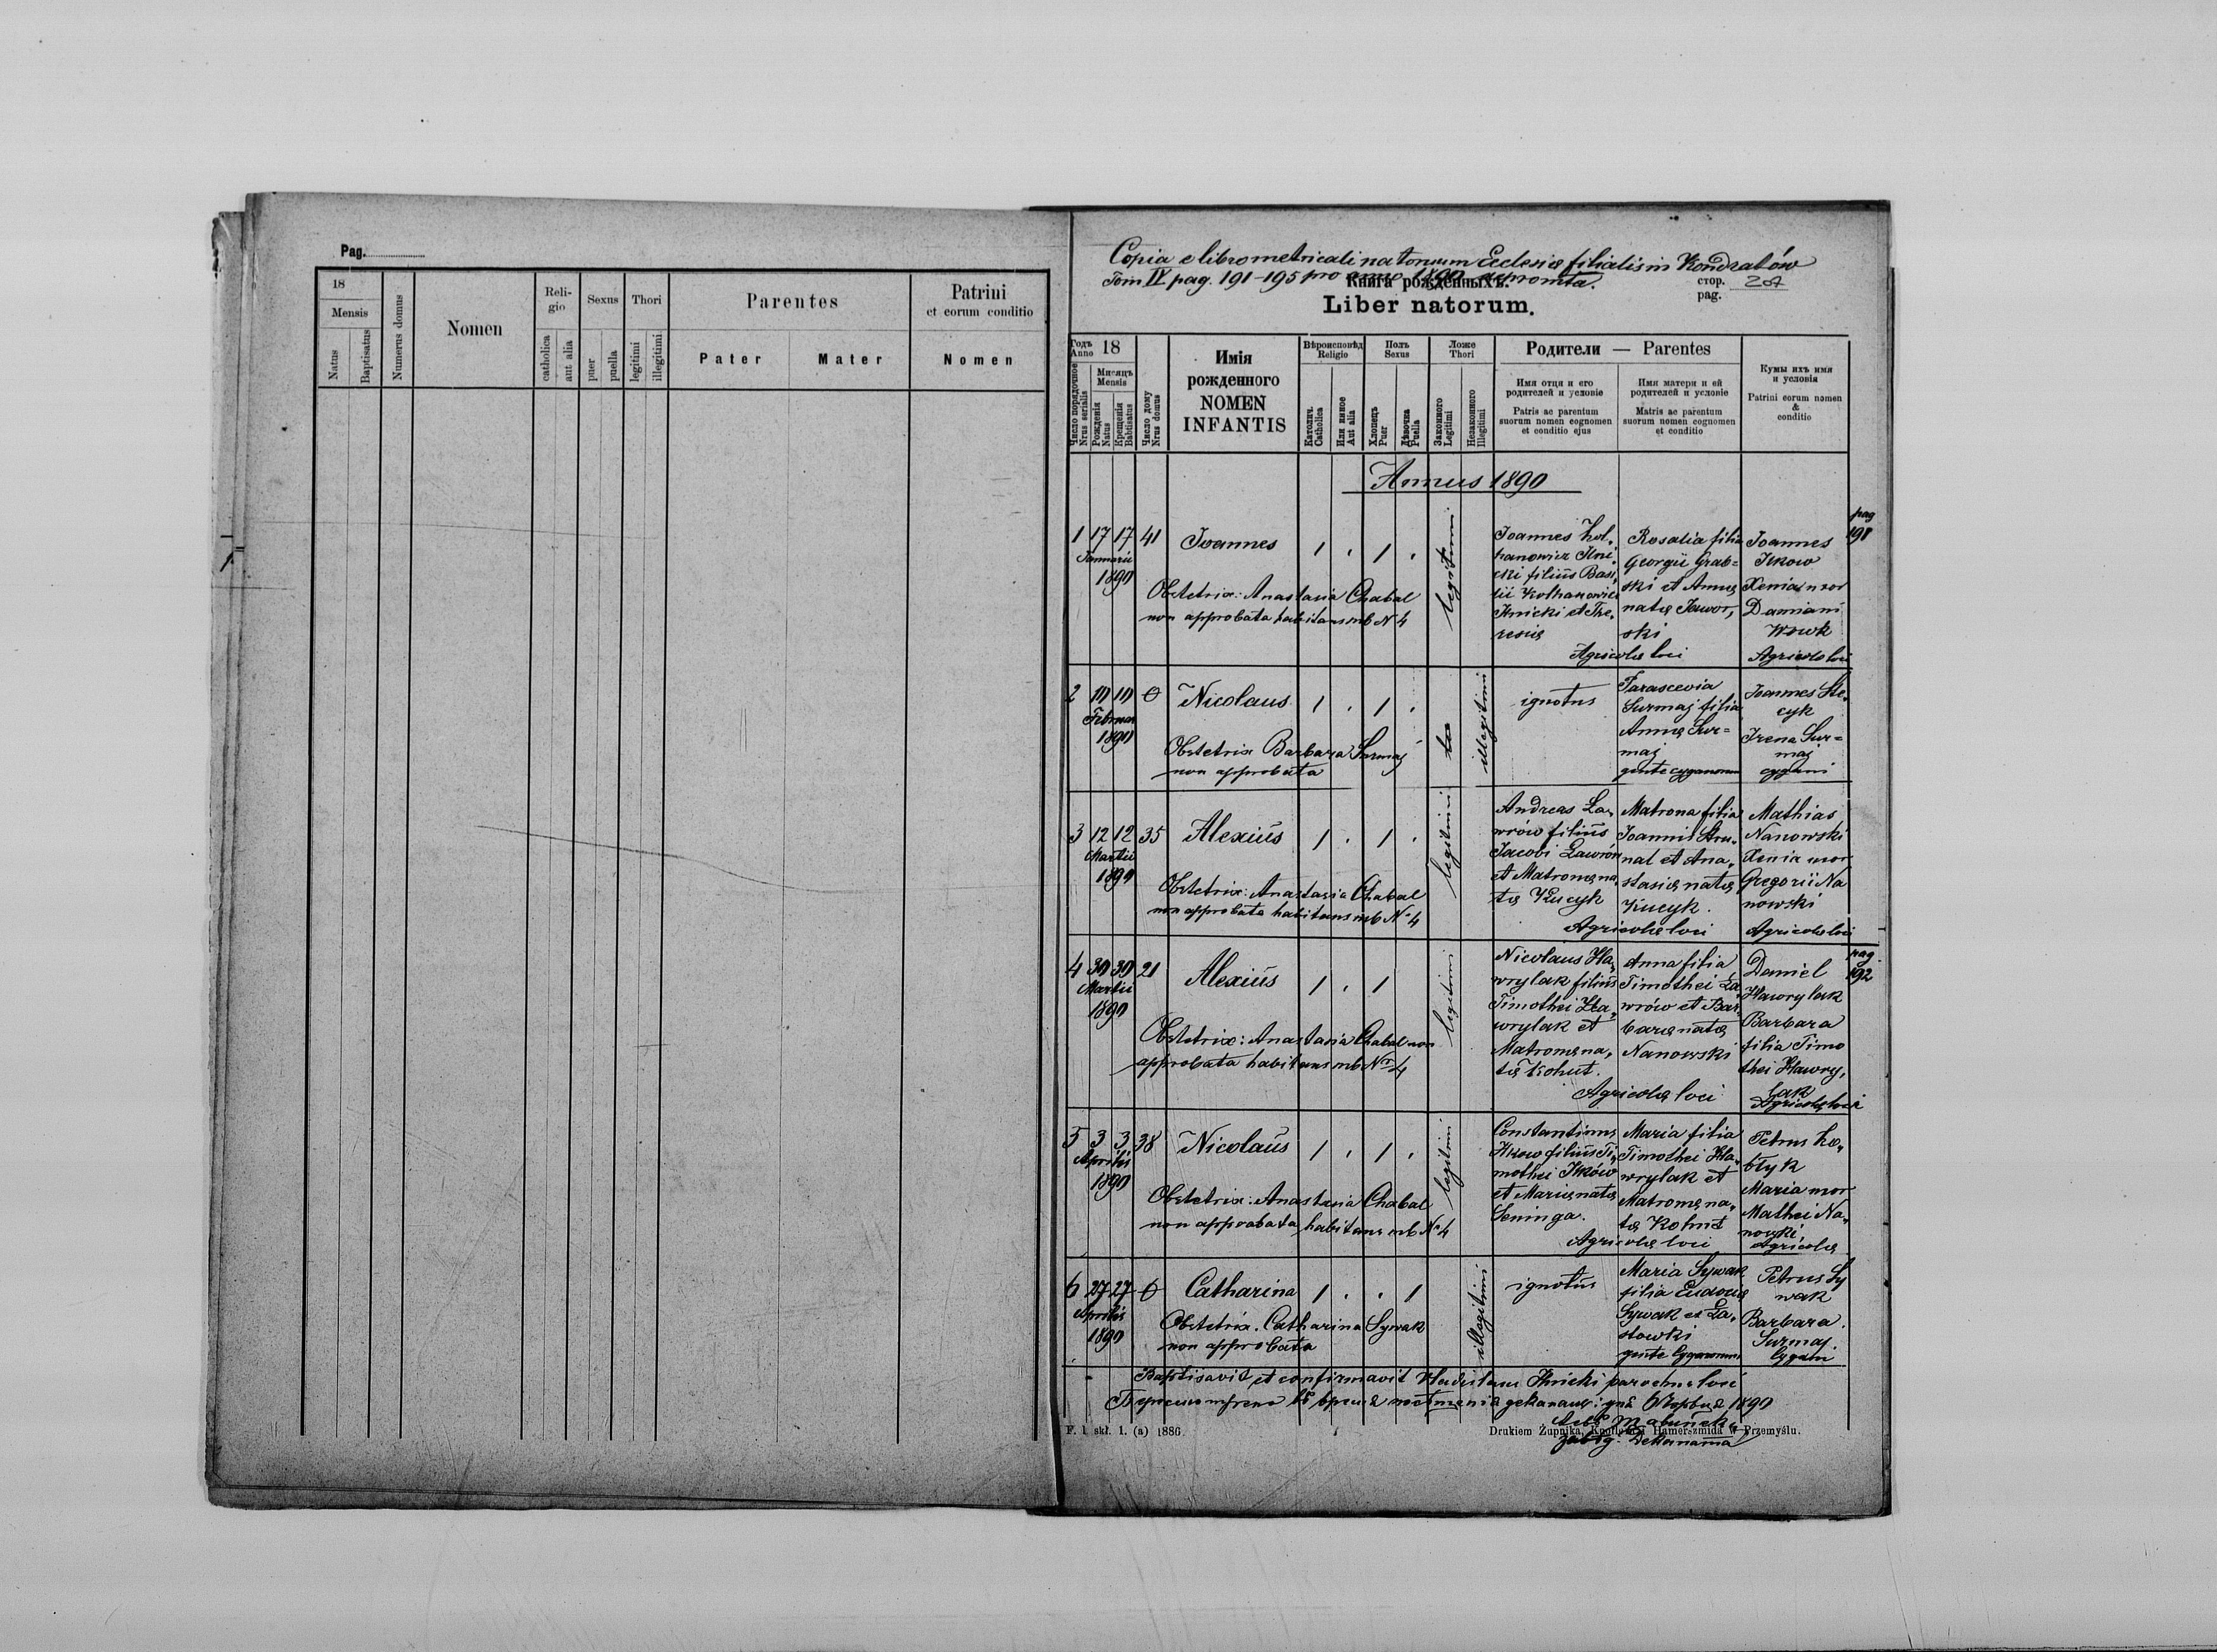 Pag.
18
Mensis
Natus
Baptisatus
Numerus domus
Nomen
Reli-
gio
catholica
aut alia
Sexus
puer
puella
Thori
legitimi
illegitimi
Parentes
Pater
Mater
Patrini
et eorum conditio
Nomen
Copia e libro metricali natorum Ecclesiæ filialis in Kondratów
Tom IV pag. 191-195 pro anno 1890 depromta.
Книга рожденныхъ.
стор.
pag.
Liber natorum.
Годъ
Anno 18
Число порядочное
Nrus serialis
Мѣсяцъ
Mensis
Рожденія
Natus
Крещенія
Babtisatus
Число дому
Nrus domus
Имія
рожденного
NOMEN
INFANTIS
Вѣроисповѣд
Religio
Католич.
Catholica
Или инное
Aut alia
Полъ
Sexus
Хлопецъ
Puer
Дѣвочка
Puella
Ложе
Thori
Законного
Legitimi
Незаконного
Illegitimi
Родители — Parentes
Имя отця и его
родителей и условіе
Patris ac parentum
suorum nomen cognomen
et conditio ejus
Имя матери и ей
родителей и условіе
Matris ac parentum
suorum nomen cognomen
et conditio
Кумы ихъ имя
и условія
Patrini eorum nomen
&
conditio
Annus 1890
pag
191
1 17 17 41 Joannes 1 . 1 .
Januarii
1890
legitimi
Obstetrix: Anastasia Chabal
non approbata habitans sub N 4
Ilni
cki filius Basi,
lii
Ilnicki et The,
resiæ
Rosalia filia
Georgii Grab=
ski et Annæ
natæ Jawor,
ski
Agricolæ loci
Joannes
Ilkow
Xenia uxor
Damiani
Agricolæ loci
2 10 10 0 Nicolaus 1 . 1 .
Februar
1890
illegitimi
Obstetrix Barbara Surmaj
non approbata
ignotus
Parascevia
Surmaj filia
Annæ Sur=
maj
gente cyganorum
Joannes Ste,
cyk
Irena Sur=
maj
cygani
3 12 12 35 Alexius 1 . 1 .
Martii
1890
legitimi
Obstetrix: Anastasia Chabal
non approbata habitans sub N° 4
Andreas Ła,
wrów filius
Jacobi Ławrów
et Matronæ na,
tæ Kucyk
Matrona filia
Joannis
nal et Ana,
stasiæ natæ
Kucyk.
Agricolæ loci
Mathias
Nanowski
Xenia uxor
Gregorii Na
nowski
Agricolæ loci
pag.
192
4 30 30 21 Alexius 1 . 1
Martii
1890
legitimi
Obstetrix: Anastasia Chabal non
approbata habitans sub Nr 4
Nicolaus Ha,
wrylak filius
Timothei Ha,
wrylak et
Matronæ na,
tæ Kohut.
Anna filia
Timothei Ła
wrów et Bar,
baræ natæ
Nanowski
Agricolæ loci
Daniel
Hawrylak
Barbara
filia Timo
thei Hawry,
lak
Agricolæ loci
5 3 3 38 Nicolaus 1 . 1 .
Aprilis
1890
legitimi
Obstetrix: Anastasia Chabal
non approbata habitans sub N° 4
Constantinus
Ilkow filius Ti,
mothei Ilków
et Mariæ natæ
Seninga.
Maria filia
Timothei Ha,
wrylak et
Matronæ na,
tæ Kohut
Agricolæ loci
Petrus
Maria uxor
Mathei Na,
nowski
Agricolæ
6 27 27 0 Catharina 1 . . 1
Aprilis
1890
illegitimi
Obstetrix. Catharina Sywak
non approbata
ignotus
Maria Sywak
filia Eudoxiæ
Sywak et
gente Cyganorum
Petrus Sy
wak
Barbara
Surmaj.
Cygani
Baptisavit et confirmavit Vladislaus Ilnicki parochus loci
1890
F. 1 skł. 1. (a) 1886.
Drukiem Żupnika, Knollera i Hamerszmida w Przemyślu.